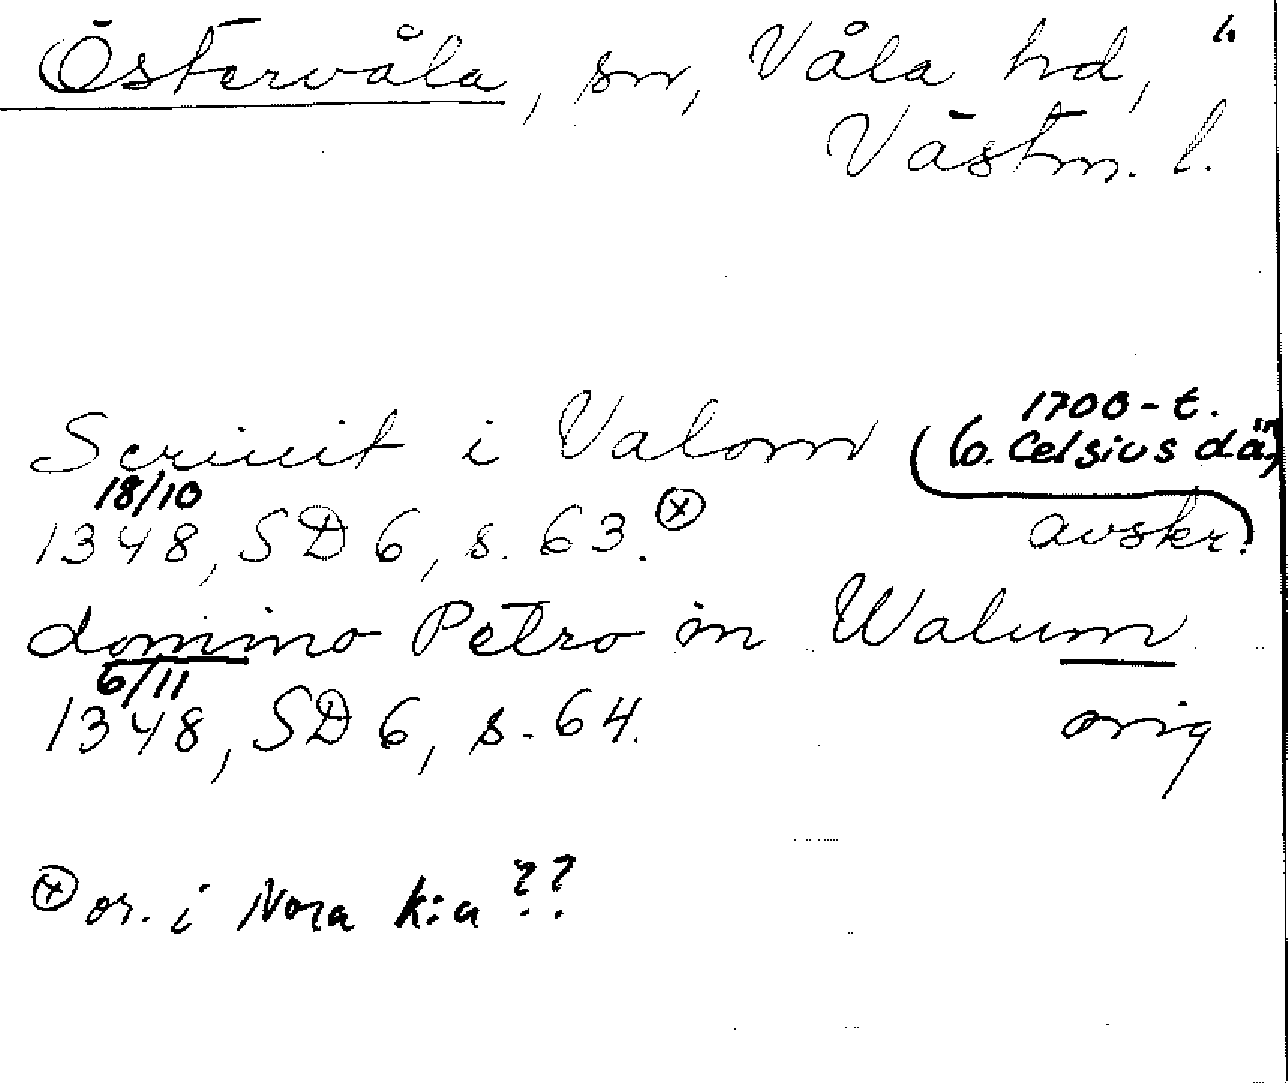 Östervåla, sn, Våla hd, 4
Västm. l.
Scriuit i Valom (o. Celsius d.ä.,
1700-t.
18/10
1348, SD 6, s. 63. ⊗ avskr.)
domino Petro in Walum
6/11
1348, SD 6, s. 64. orig
⊗ or. i Nora k:a ??